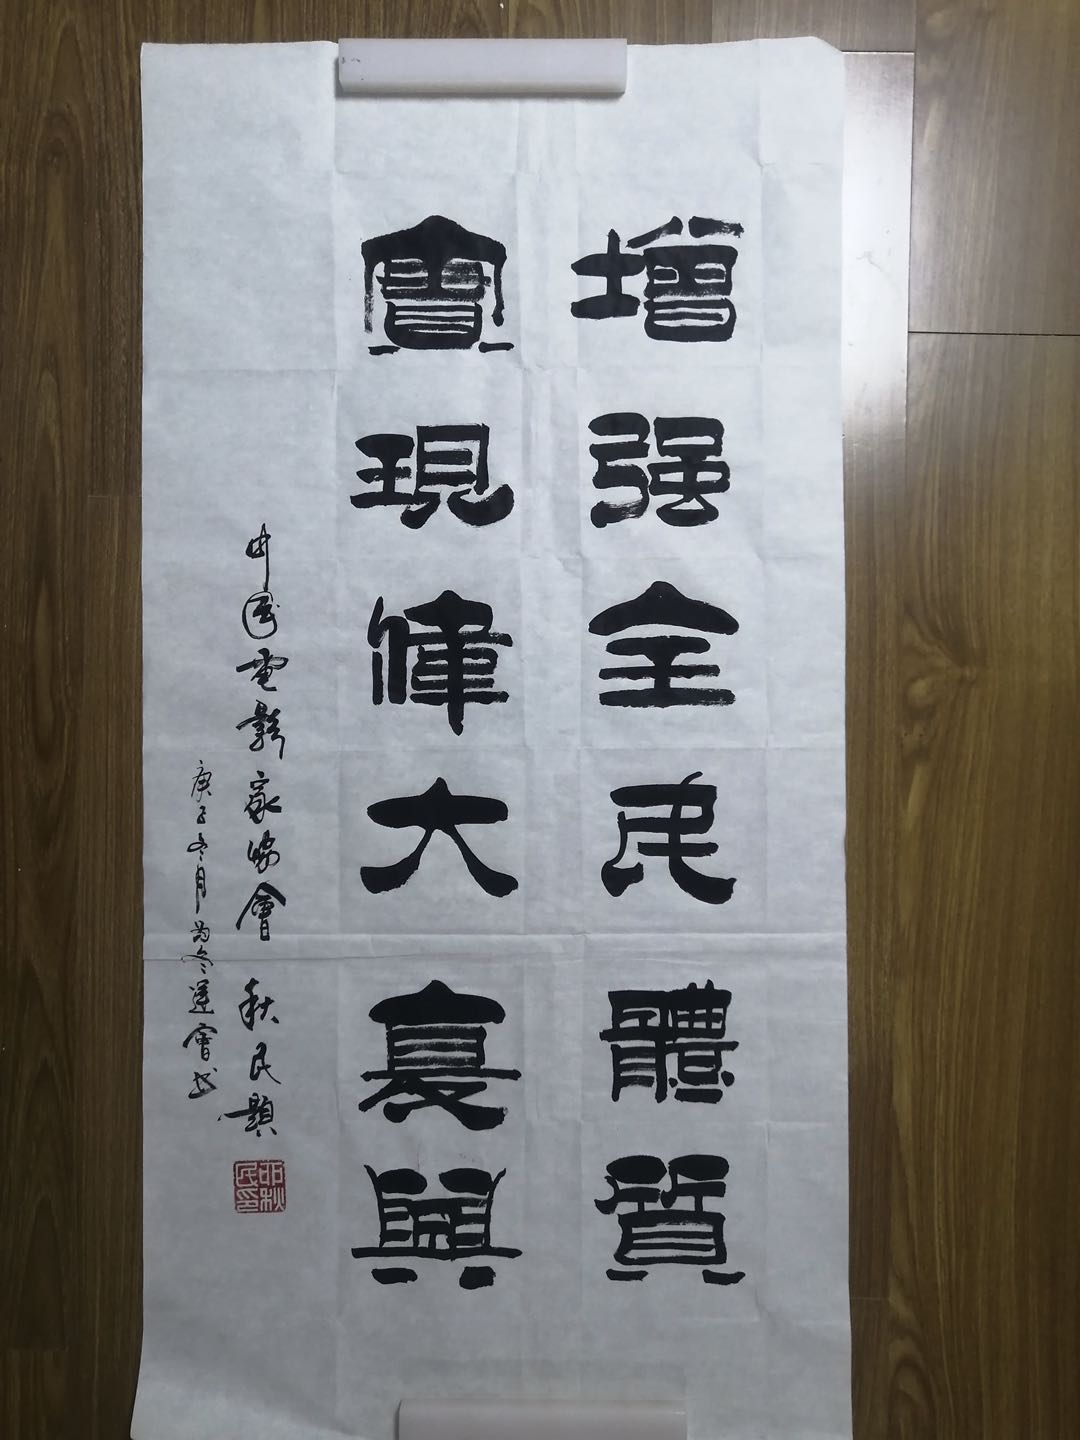 增强全民體質
實現偉大夏興
中国電影家協會 秋民題
庚子冬月为冬運會书
秋
民印